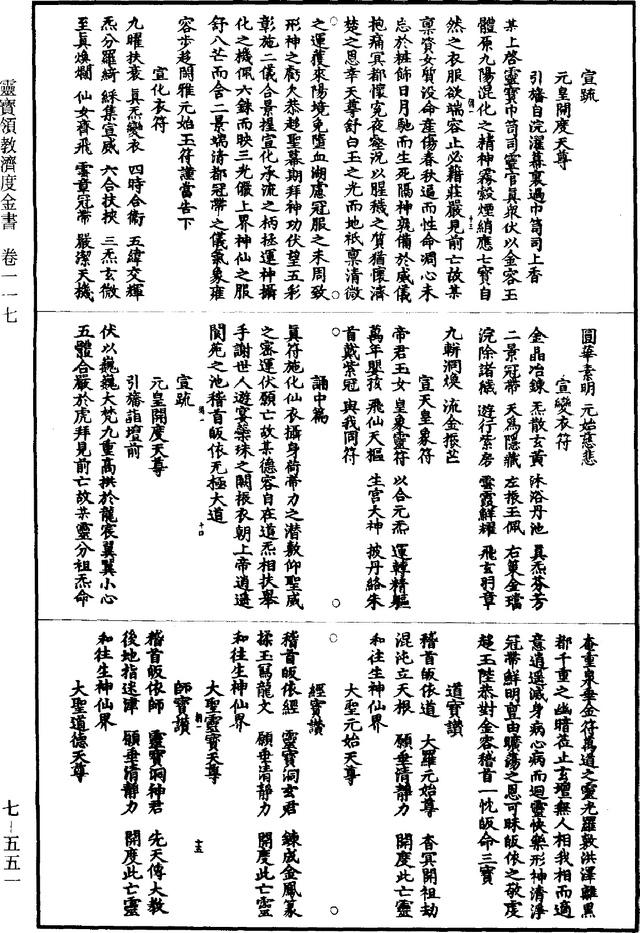 宣疏
元皇開度天尊
引旛自浣濯幕裏過巾笥司上香
某上啓靈寶巾笥司靈官真衆伏以金容玉
體原九陽混化之精神霧縠煙綃應七寶自
然之衣服欲端容止必藉莊嚴見前亡故某
稟資女質没命產傷春秋過而性命凋心未
忘於粧飾日月馳而生死隔神奚備於威儀
抱痛冥都懷寃夜壑況以腥穢之質猶懷濟
楚之思幸天尊舒白玉之光而地祇稟清微
之運獲來陽境免墮血湖慮冠服之未周致
形神之虧欠恭趍聖幕期拜神功伏望五彩
彰施二儀合景握宣化承流之柄拯運神攝
化之機佩六銖而映三光儼上界神仙之服
舒八芒而含二景端清都冠帶之儀氣象雍
容步趍閑雅元始玉符謹當告下
宣化衣符
九曜扶衰 真炁變衣 四時合術 五緯交輝
炁分羅綺 綵集宣威 六合扶挾 三炁玄微
至真煥爛 仙女齊飛 雲章冠帶 嚴潔天機
圓華素明 元始慈悲
宣變衣符
金晶冶鍊 炁散玄黃 沐浴丹池 真炁芬芳
二景冠帶 天馬隱藏 左振玉佩 右策金璫
浣除諸穢 遊行紫房 雲霞鮮耀 飛玄羽章
九輧洞煥 流金振芒
宣天皇象符
帝君玉女 皇象靈符 以合元炁 運轉精軀
萬年嬰孩 飛仙天樞 生宮大神 披丹絡朱
首戴紫冠 與我同符
誦中篇
真符施化仙衣攝身荷帝力之潛敷仰聖威
之密運伏願亡故某德容自在道炁相扶舉
手謝世人遊宴蘂珠之闕振衣朝上帝逍遙
閬苑之池稽首皈依无極大道
宣疏
元皇開度天尊
引旛詣壇前
伏以巍巍大梵九重高拱於龍宸翼翼小心
五體合嚴於虎拜見前亡故某靈分祖炁命
奄重泉奉金符萬道之靈光羅敷洪澤離黑
都千重之幽暗茲止玄壇無人相我相而適
意逍遙滅身病心病而迴靈快樂形神清淨
冠帶鮮明亶由曠蕩之恩可昧皈依之敬度
越玉陛恭對金容稽首一忱皈命三寶
道寶讚
稽首皈依道 大羅元始尊 杳冥開祖劫
混沌立天根 願垂清靜力 開度此亡靈
和往生神仙界
大聖元始天尊
經寶讚
稽首皈依經 靈寶洞玄君 鍊成金鳳篆
揉玉爲龍文 願垂清靜力 開度此亡靈
和往生神仙界
大聖靈寶天尊
師寶讚
稽首皈依師 靈寶洞神君 先天傳大教
後地指迷津 願垂清靜力 開度此亡靈
和往生神仙界
大聖道德天尊
靈寶領教濟度金書 卷一一七
七—五五一